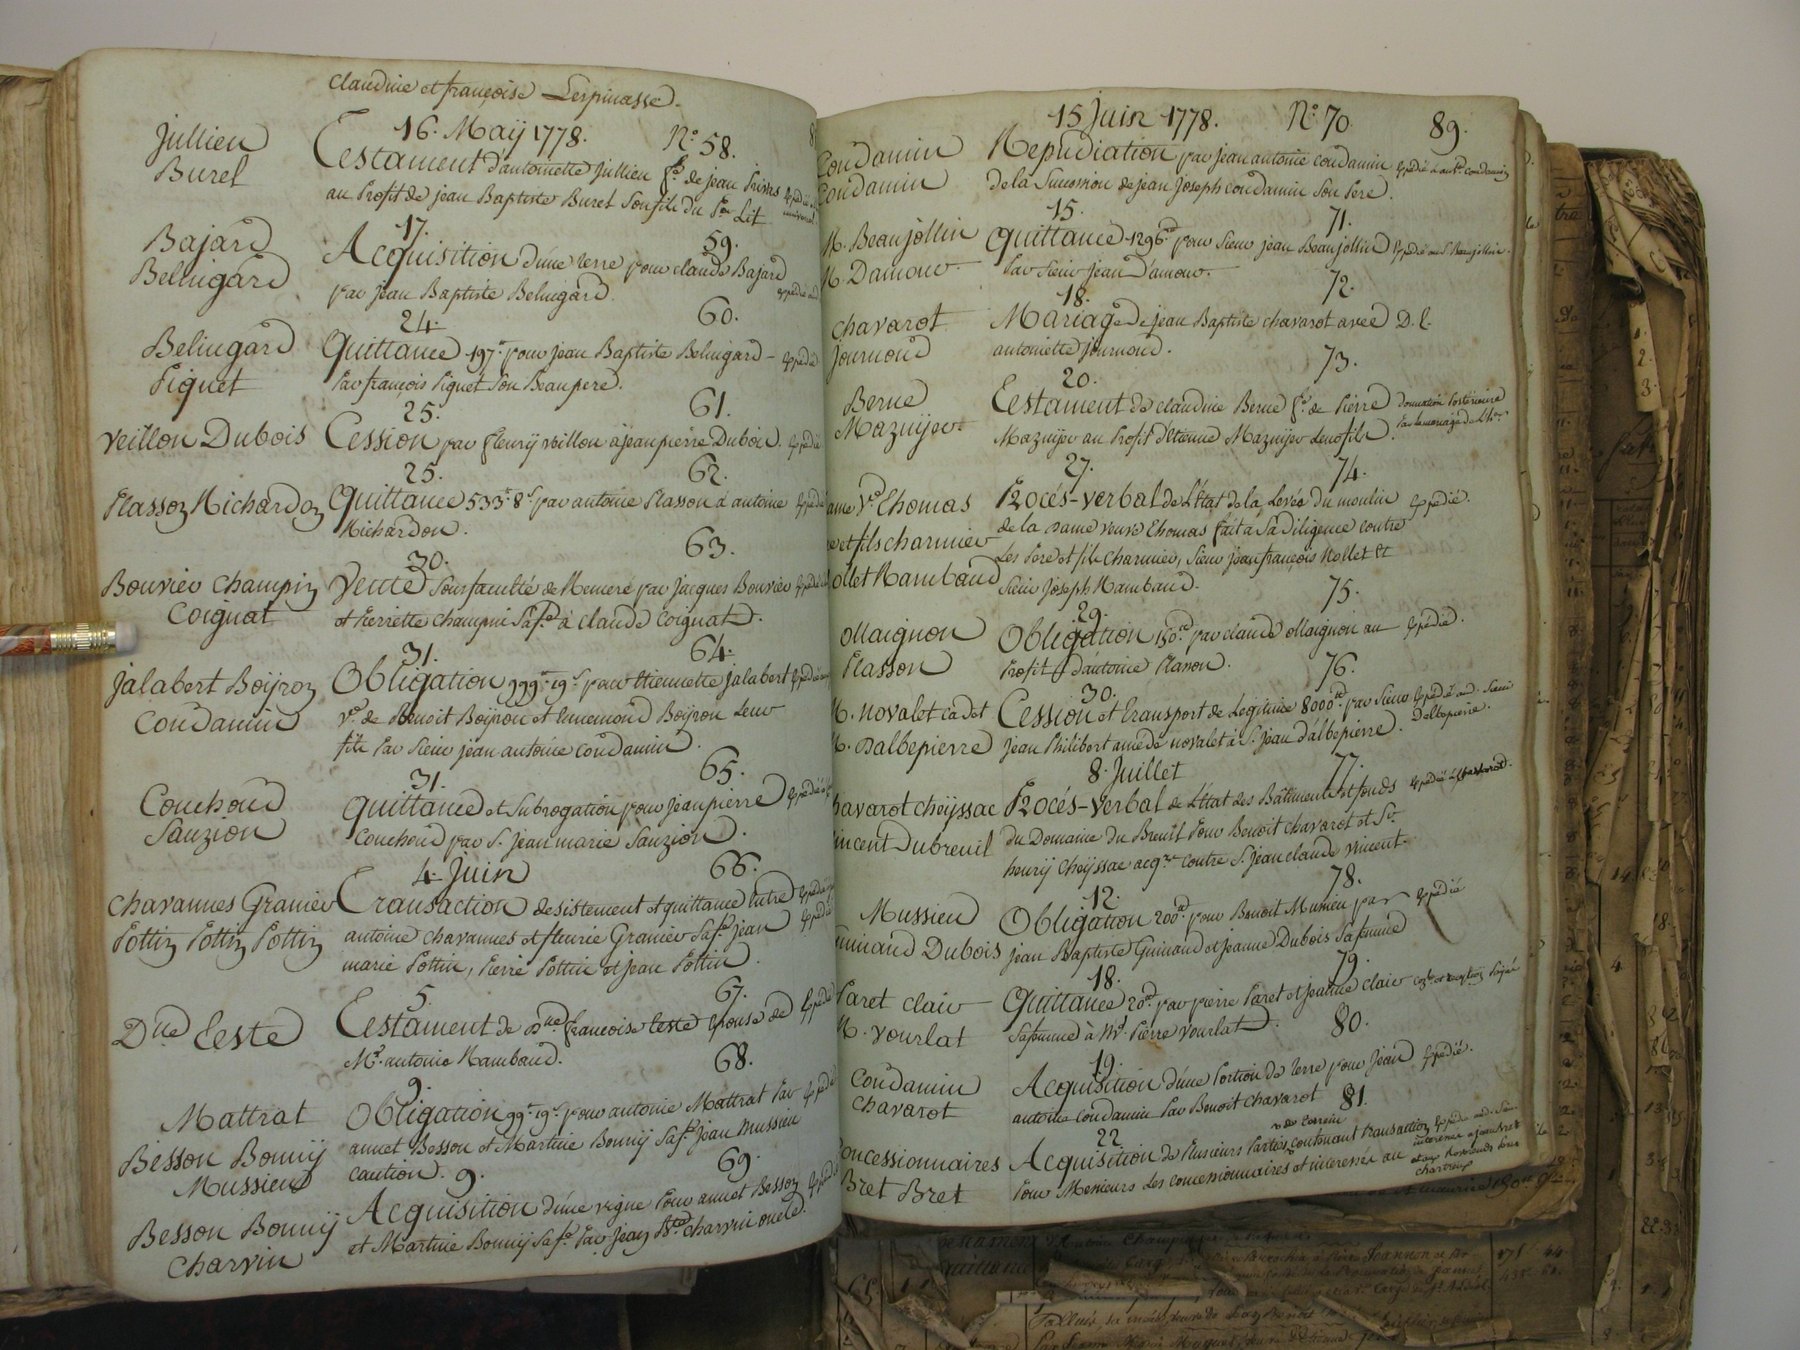 Claudine et françoise Lespinasse.
16. Maÿ 1778. N.º 58.
Jullien
Burel
Testament d'antoinette Jullien f.e de jean Privas Expédié
au Profit de jean Baptiste Burel Son fils du P.er Lit
17. 59.
Bajard
Belingard
Acquisition d'une terre pour claude Bajard
par Jean Baptiste Belingard. Expédié
24. 60.
Belingard
Piquet
Quittance 197.# pour Jean Baptiste Belingard – Expédié
Par françois Piquet Son Beaupere.
25. 61.
Veillon Dubois
Cession par fleurÿ veillon à jean pierre Dubois. Expédié
25. 62.
Plasson Richardon
Quittance 533.# 8.s par antoine Plasson à antoine Expédié
Richardon.
30. 63.
Bouvier Champin
Coignat
Vente Sous faculté de Remeré par Jacques Bouvier Expédié
et Pierrette champin Sa f.e à claude Coignat.
31. 64.
Jalabert Boÿron
Condamin
Obligation 999.# 19.s pour Etiennette Jalabert Expédié
v.e de Benoit Boÿron et Ennemond Boÿron Leur
fils Par Sieur jean antoine Condamin.
31. 65.
Couchoud
Sauzion
Quittance et Subrogation pour Jean pierre Expédié
Couchoud par S. Jean marie Sauzion.
4. Juin 66.
Chavannes Granier
Pottin Pottin Pottin
Transaction desistement et quittance Entre Expédié
antoine chavannes et fleurie Granier Sa f.e Jean Expédié
marie Pottin, Pierre Pottin et Jean Pottin.
5. 67.
D.lle Teste
Testament de D.lle françoise teste Epouse de Expédié
M.e antoine Rambaud.
9. 68.
Mattrat
Besson Bonnÿ
Mussieu
Obligation 99.# 19.s pour antoine Mattrat Par Expédié
annet Besson et Martine Bonnÿ Sa f.e Jean Mussieu
caution.
9. 69.
Besson Bonnÿ
Charvin
Acquisition d'une vigne Pour annet Besson Expédié
et Martine Bonnÿ Sa f.e Par Jean B.te Charvin oncle.
15 Juin 1778. N.º 70. 89.
Condamin
Condamin
Repudiation par Jean antoine Condamin Expédié à ant.e Condamin
de la Succession de jean Joseph Condamin Son Pere.
15. 71.
M. Beaujollin
M. Damour
Quittance 1296.# pour Sieur jean Beaujollin Expédié au S. Beaujollin.
Par Sieur Jean D'amour.
18. 72.
Chavarot
Journoud
Mariage de jean Baptiste chavarot avec D. l.
antoinette Journoud.
20. 73.
Berne
Mazuÿer
Testament de claudine Berne f.e de Pierre donnation Postérieure
Mazuÿer au Profit d'Etienne Mazuÿer Leur fils. Par Le mariage de L'h.er
27. 74.
ame V.e Thomas
e et fils charmier
ollet Rambaud
Procés-verbal de L'Etat de la Levée du moulin Expédié.
de la Dame veuve Thomas fait à Sa diligence contre
Les Pere et fils Charmier, Sieur jean françois Rollet Et
Sieur Joseph Rambaud.
29. 75.
Maignon
Plasson
Obligation 150.# par claude Maignon au Expédié.
Profit d'antoine Plasson.
30. 76.
M. Novalet cadet
M. Dalbepierre
Cession et transport de Legitime 8000.# par Sieur Expédié aud. Sieur
Jean Philibert amedé novalet à S. Jean d'albepierre. Dalbepierre.
8. Juillet 77.
havarot Cheÿssac
incent Dubreuil
Procés-verbal de L'Etat des Bâtiments et fonds Expédié à chavarot.
du Domaine du Breuil Pour Benoit Chavarot et S.r
henrÿ Cheÿssac acq.rs contre S. Jean claude vincent.
12. 78.
Mussieu
uinaud Dubois
Obligation 200.# pour Benoit Mussieu par Expédié
jean Baptiste Guinaud et Jeanne Dubois Sa femme
18. 79.
Paret Clair
M. Vourlat
Quittance 20.# par pierre Paret et Jeanne Clair
Sa femme à M.e Pierre Vourlat.
19. 80.
Condamin
Chavarot
Acquisition d'une Portion de terre pour Jean Expédié.
antoine Condamin Par Benoit Chavarot
22 81.
oncessionnaires
Bret Bret
Acquisition de Plusieurs Parties de terrein contenant transaction
Pour Messieurs Les concessionnaires et interessés au